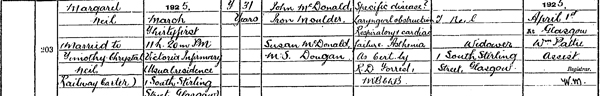 Margaret
Neil
203
Married to
Timothy Chrystal
Neil
Railway Carter)
1925.
March
Thirtyfirst
11 h. 20m PM
Victoria Infirmary
(Usual residence
1 South Stirling
Street Glasgow)
F 31
Years
John McDonald
Iron Moulder.
Susan McDonald
M.S. Dougan.
Specific disease?
Laryngeal obstruction
Respiratory cardiac
failure Asthma
As Cert by
R.D. Forrest,
M B Ch B
Neil
Widower
1 South Stirling
Street, Glasgow.
1925.
April 1st
At Glasgow
Wm
Assist
Registrar.
W.M.